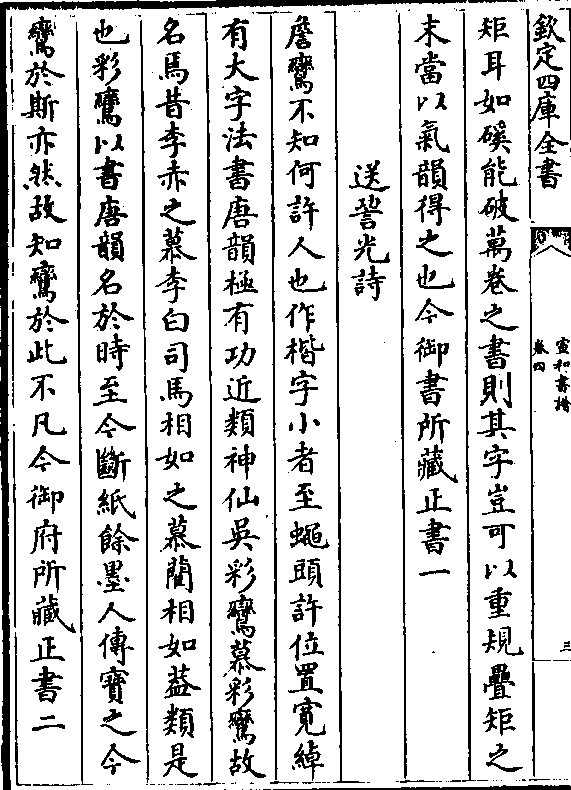 欽定四庫全書
宣和書譜
卷四
三
矩耳如磎能破萬卷之書則其字豈可以重規疊矩之
末當以氣韻得之也今御書所藏正書一
送㫤光詩
詹鸞不知何許人也作楷字小者至蠅頭許位置寛綽
有大字法書唐韻極有功近類神仙吳彩鸞慕彩鸞故
名焉昔李赤之慕李白司馬相如之慕藺相如益類是
也彩鸞以書唐韻名於時至今斷紙餘墨人傳寳之今
鸞於斯亦然故知鸞於此不凡今御府所藏正書二